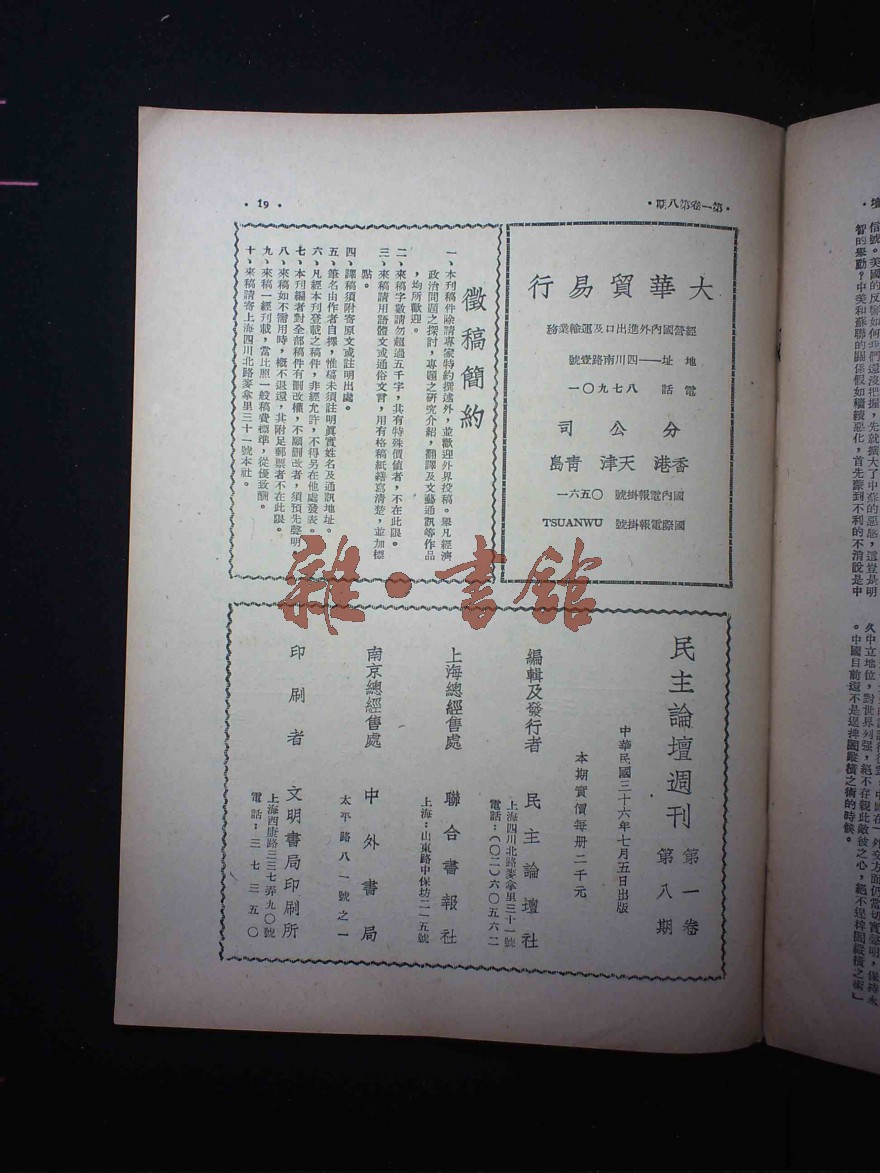 第一卷第八期
• 19 •
大華貿易行
經營國內外進出口及運輸業務
地址——四川南路壹號
電話 八七九〇一
分公司
香港 天津 青島
國內電報掛號 〇五六一
國際電報掛號 TSUANWU
徵稿簡約
一、本刊稿件除請專家特約撰述外，並歡迎外界投稿。舉凡經濟
政治問題之探討，專題之研究介紹，翻譯及文藝通訊等作品
，均所歡迎。
二、來稿字數請勿超過五千字，其有特殊價值者，不在此限。
三、來稿請用語體文或通俗文言，用有格稿紙繕寫清楚，並加標
點。
四、譯稿須附寄原文或註明出處。
五、筆名由作者自擇，惟稿末須註明眞實姓名及通訊地址。
六、凡經本刊登載之稿件，非經允許，不得另在他處發表。
七、本刊編者對全部稿件有刪改權，不願刪改者，須預先聲明
八、來稿如不需用時，概不退還，其附足郵票者不在此限。
九、來稿一經刊載，當比照一般稿費標準，從優致酬。
十、來稿請寄上海四川北路麥拿里三十一號本社。
雜·書館
民主論壇週刊 第一卷 第八期
中華民國三十六年七月五日出版
本期實價每册二千元
編輯及發行者 民主論壇社
上海四川北路麥拿里三十一號
電話：（〇二）六〇五六二
上海總經售處 聯合書報社
上海：山東路中保坊二一五號
南京總經售處 中外書局
太平路八一號之一
印刷者 文明書局印刷所
上海西康路三三七弄九〇號
電話：三七三五〇
信號。美國的反響如何我們還沒把握，先就擴大了中蘇的惡感，這豈是明
智的舉動？中美和蘇聯的關係假如繼續惡化，首先蒙到不利的不消說是中
久中立地位，對世界列强，絕不存觀此敵彼之心，絕不逞捭闔縱橫之術」
。中國目前還不是逞捭闔縱橫之術的時候。